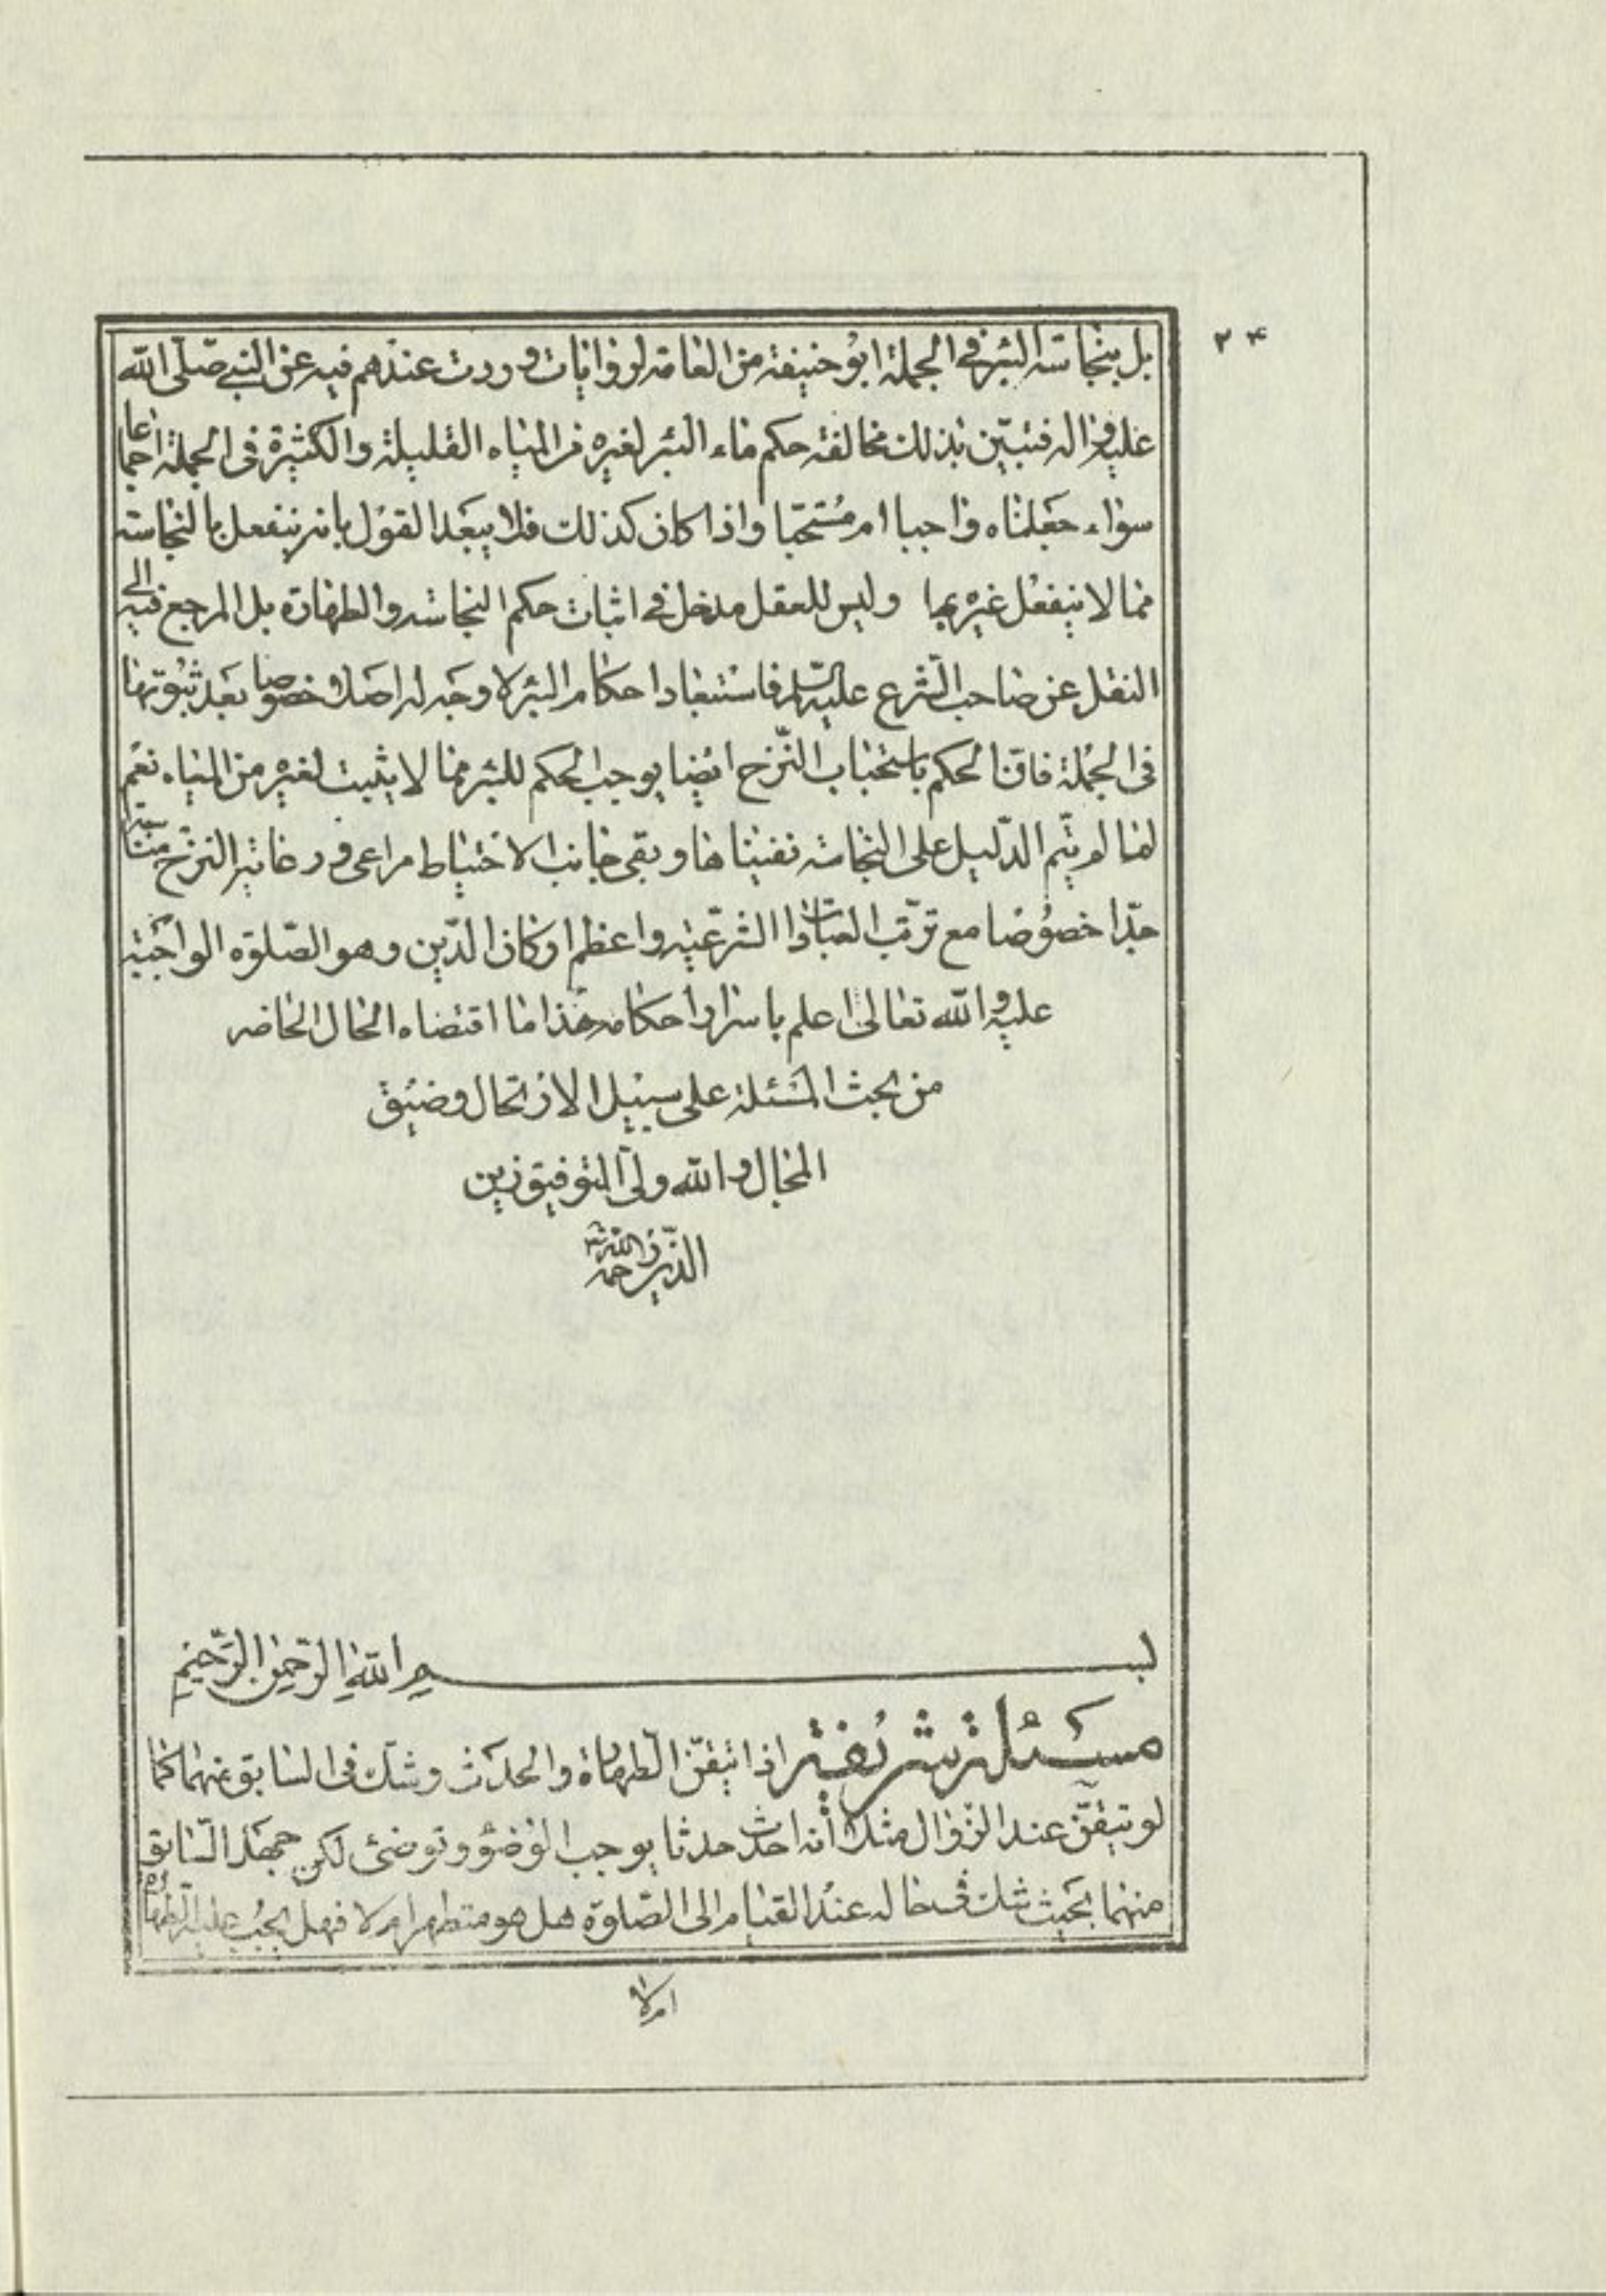 ٢٤
بل بنجاسته البئر في الجملة ابو حنيفة من العامة لروايات وردت عندهم فيه عن النبي صلّى الله
عليه واله فتبيّن بذلك مخالفة حكم ماء البئر لغيره من المياه القليلة والكثيرة في الجملة اجماعا
سواء جعلناه واجبا ام مستحبّا واذا كان كذلك فلا يبعد القول بانه ينفعل بالنجاسة
مما لا ينفعل غيره بها وليس للعقل مدخل في اثبات حكم النجاسة والطهارة بل المرجع فيه الى
النقل عن صاحب الشرع عليه السلم فاستبعاد احكام البئر لا وجه له اصلا وخصوصا بعد ثبوتها
في الجملة فانّ الحكم باستحباب النّزح ايضا يوجب الحكم للبئر مما لا يثبت لغيره من المياه نعم
لما لم يتم الدّليل على النجاسة نفيناها وبقى جانب الاحتياط مراعى ورعاية النزح متناسبة
جدّا خصوصا مع ترتّب العبادات الشرعيّه واعظم اركان الدّين وهو الصّلوة الواجبة
عليه والله تعالى اعلم باسرار احكامه هذا ما اقتضاه الحال الحاضر
من بحث المسئلة على سبيل الارتحال وضيق
المجال والله ولىّ التوفيق زين
الدّين رحمه الله
بسم الله الرّحمن الرّحيم
مسئلة شريفة اذا تيقّن الطهارة والحدث وشكّ في السابق منهما كما
لو تيقّن عند الزوال مثلا أنه احدث حدثا يوجب الوضؤ وتوضئ لكن جهل السّابق
منهما بحيث شك في حاله عند القيام الى الصّلوة هل هو متطهر ام لا فهل يجب عليه الطهارة
ام لا